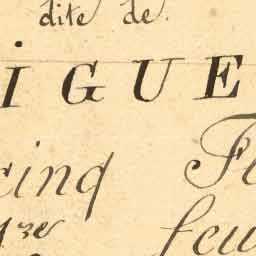 dite de
IGUE
cinq F
feu